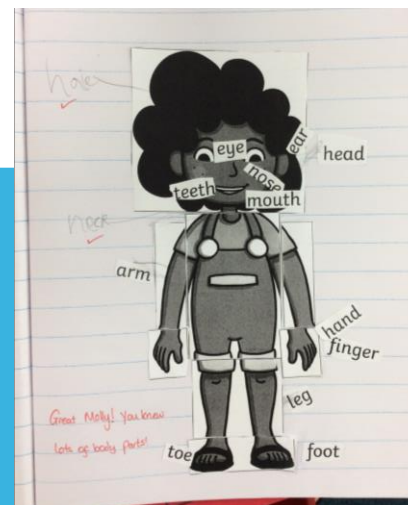 haie
eye
ear
head
teeth
nose
mouth
neck
arm
hand
finger
leg
Great Molly! You know
lots of body parts!
toe
foot